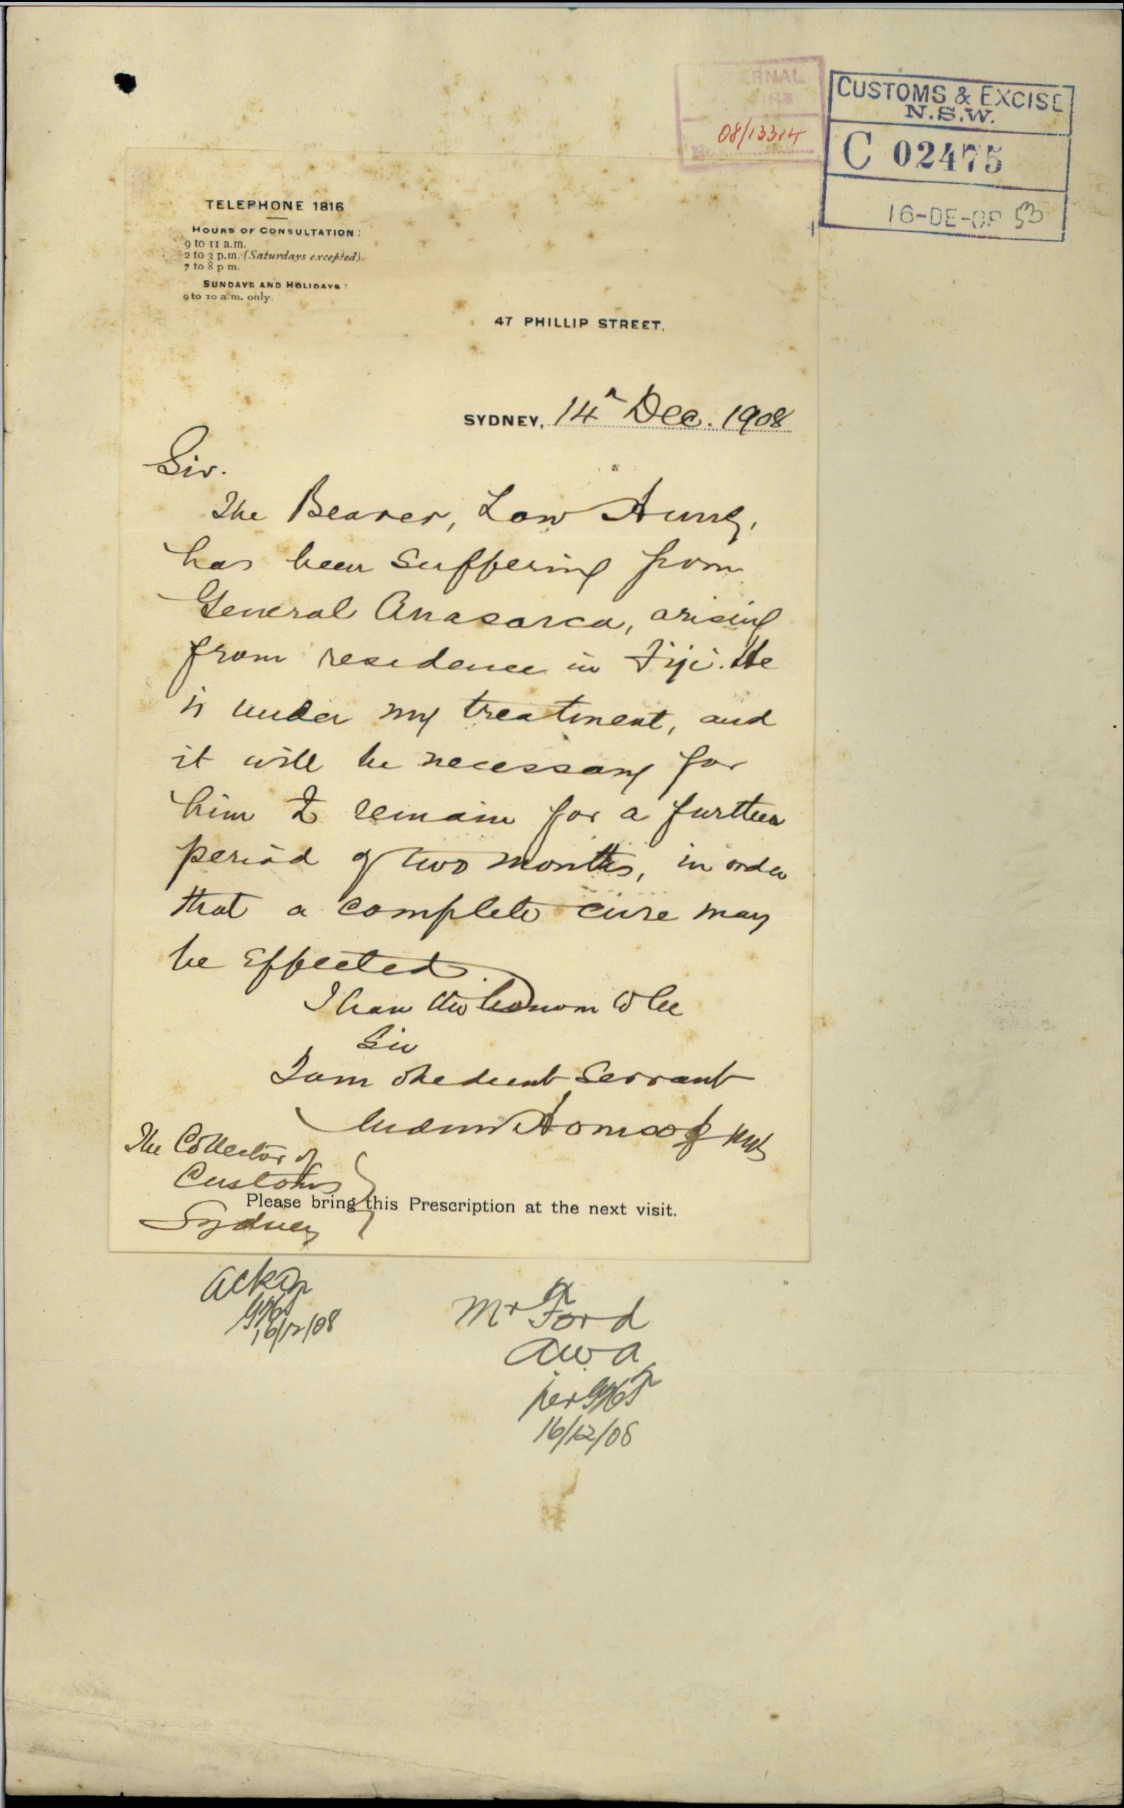 EXTERNAL
08/13314
CUSTOMS & EXCISE
N.S.W.
C 02475
16-DE-08 53
TELEPHONE 1816
HOURS OF CONSULTATION:
9 to 11 a.m.
2 to 3 p.m. (Saturdays excepted).
7 to 8 p m.
SUNDAYS AND HOLIDAYS:
9 to 10 a.m. only.
47 PHILLIP STREET,
SYDNEY, 14th Dec. 1908
Sir.
The Bearer, Low Hung,
has been suffering from
General Anasarca, arising
from residence in Fiji. He
is under my treatment, and
it will be necessary for
him to remain for a further
period of two months, in order
that a complete cure may
be effected.
I have the honour to be
Sir
Your obedient Servant
The Collector of
Customs
Sydney
Please bring this Prescription at the next visit.
Ackn
16/12/08
Mr Ford
per
16/12/08